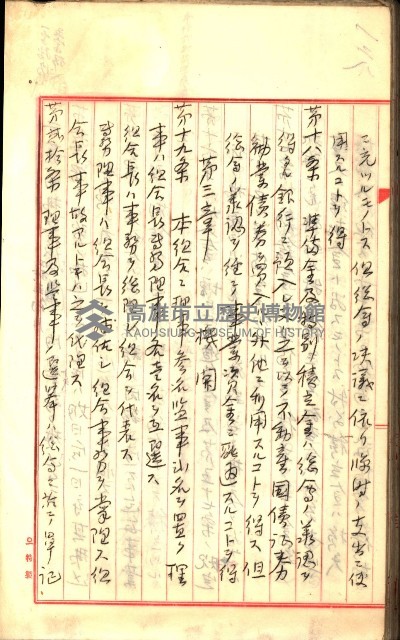 一六八
ニ充ツルモノトス但総会ノ決議ニ依リ臨時ノ支出ニ使
用スルコトヲ得
第十八条 準備金及特別積立金ハ総会ノ承認ヲ
得タル銀行ニ預入レ又ハ之ヲ以テ不動産国債証券
勧業債券ヲ買入ルノ外他ニ利用スルコトヲ得ス但
総会ノ承認ヲ経テ事業資金ニ融通スルコトヲ得
第三章 機関
第十九条 本組合ニ理事 参名監事 弐名ヲ置ク理
事ハ組合長専務理事 各壱名ヲ互選ス
組合長ハ事務ヲ総理シ組合ヲ代表ス
専務理事ハ組合長ヲ補佐シ組合事務ヲ掌理ス組
合長事故アルトキハ之ヲ代理ス
第弐拾条 理事及監事ノ選挙ハ総会ニ於テ単記
高雄市立歴史博物館
KAOHSIUNG MUSEUM OF HISTORY